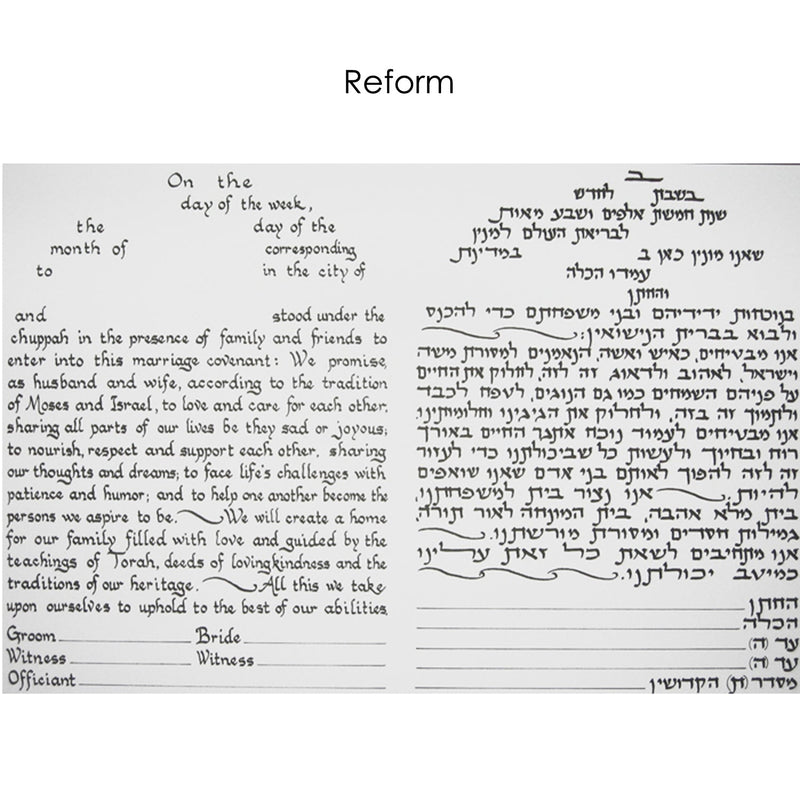 Reform
On the
day of the week,
the day of the
month of corresponding
to in the city of
and stood under the
chuppah in the presence of family and friends to
enter into this marriage covenant: We promise,
as husband and wife, according to the tradition
of Moses and Israel, to love and care for each other,
sharing all parts of our lives be they sad or joyous;
to nourish, respect and support each other, sharing
our thoughts and dreams; to face life's challenges with
patience and humor; and to help one another become the
persons we aspire to be. We will create a home
for our family filled with love and guided by the
teachings of Torah, deeds of lovingkindness and the
traditions of our heritage. All this we take
upon ourselves to uphold to the best of our abilities.
Groom Bride
Witness Witness
Officiant
ב
בשבת לחדש
שנת חמשת אלפים ושבע מאות
לבריאת העולם למנין
שאנו מונין כאן ב במדינת
עמדו הכלה
והחתן
בנוכחות ידידיהם ובני משפחתם כדי להכנס
ולבוא בברית הנישואין:
אנו מבטיחים, כאיש ואשה, הנאמנים למסורת משה
וישראל, לאהוב ולדאוג זה לזה, לחלוק את החיים
על פניהם השמחים כמו גם הנוגים, לטפח לכבד
ולתמוך זה בזה, ולחלוק את הגיגינו וחלומותינו.
אנו מבטיחים לעמוד נוכח אתגר החיים באורך
רוח ובחיוך ולעשות כל שביכולתנו כדי לעזור
זה לזה להפוך לאותם בני אדם שאנו שואפים
להיות. אנו ניצור בית למשפחתנו,
בית מלא אהבה, בית המונחה לאור תורה,
גמילות חסדים ומסורת מורשתנו.
אנו מתחייבים לשאת כל זאת עלינו
כמיטב יכולתנו.
החתן
הכלה
עד (ה)
עד (ה)
מסדר(ת) הקדושין